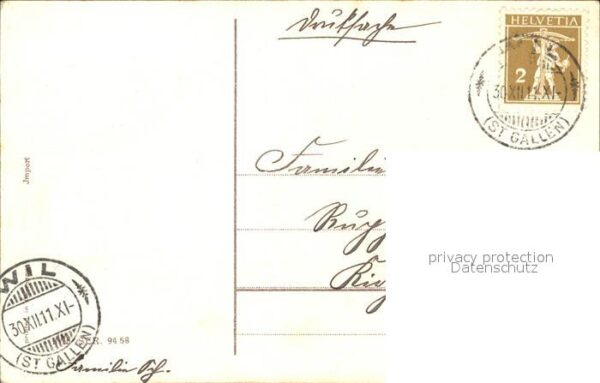 Drucksache
HELVETIA
2
WIL
30.XII.11.XI-
(ST GALLEN)
Familie
privacy protection
Datenschutz
Import
WIL
30.XII.11.XI-
(ST GALLEN)
ER. 94 58
Familie Sch.